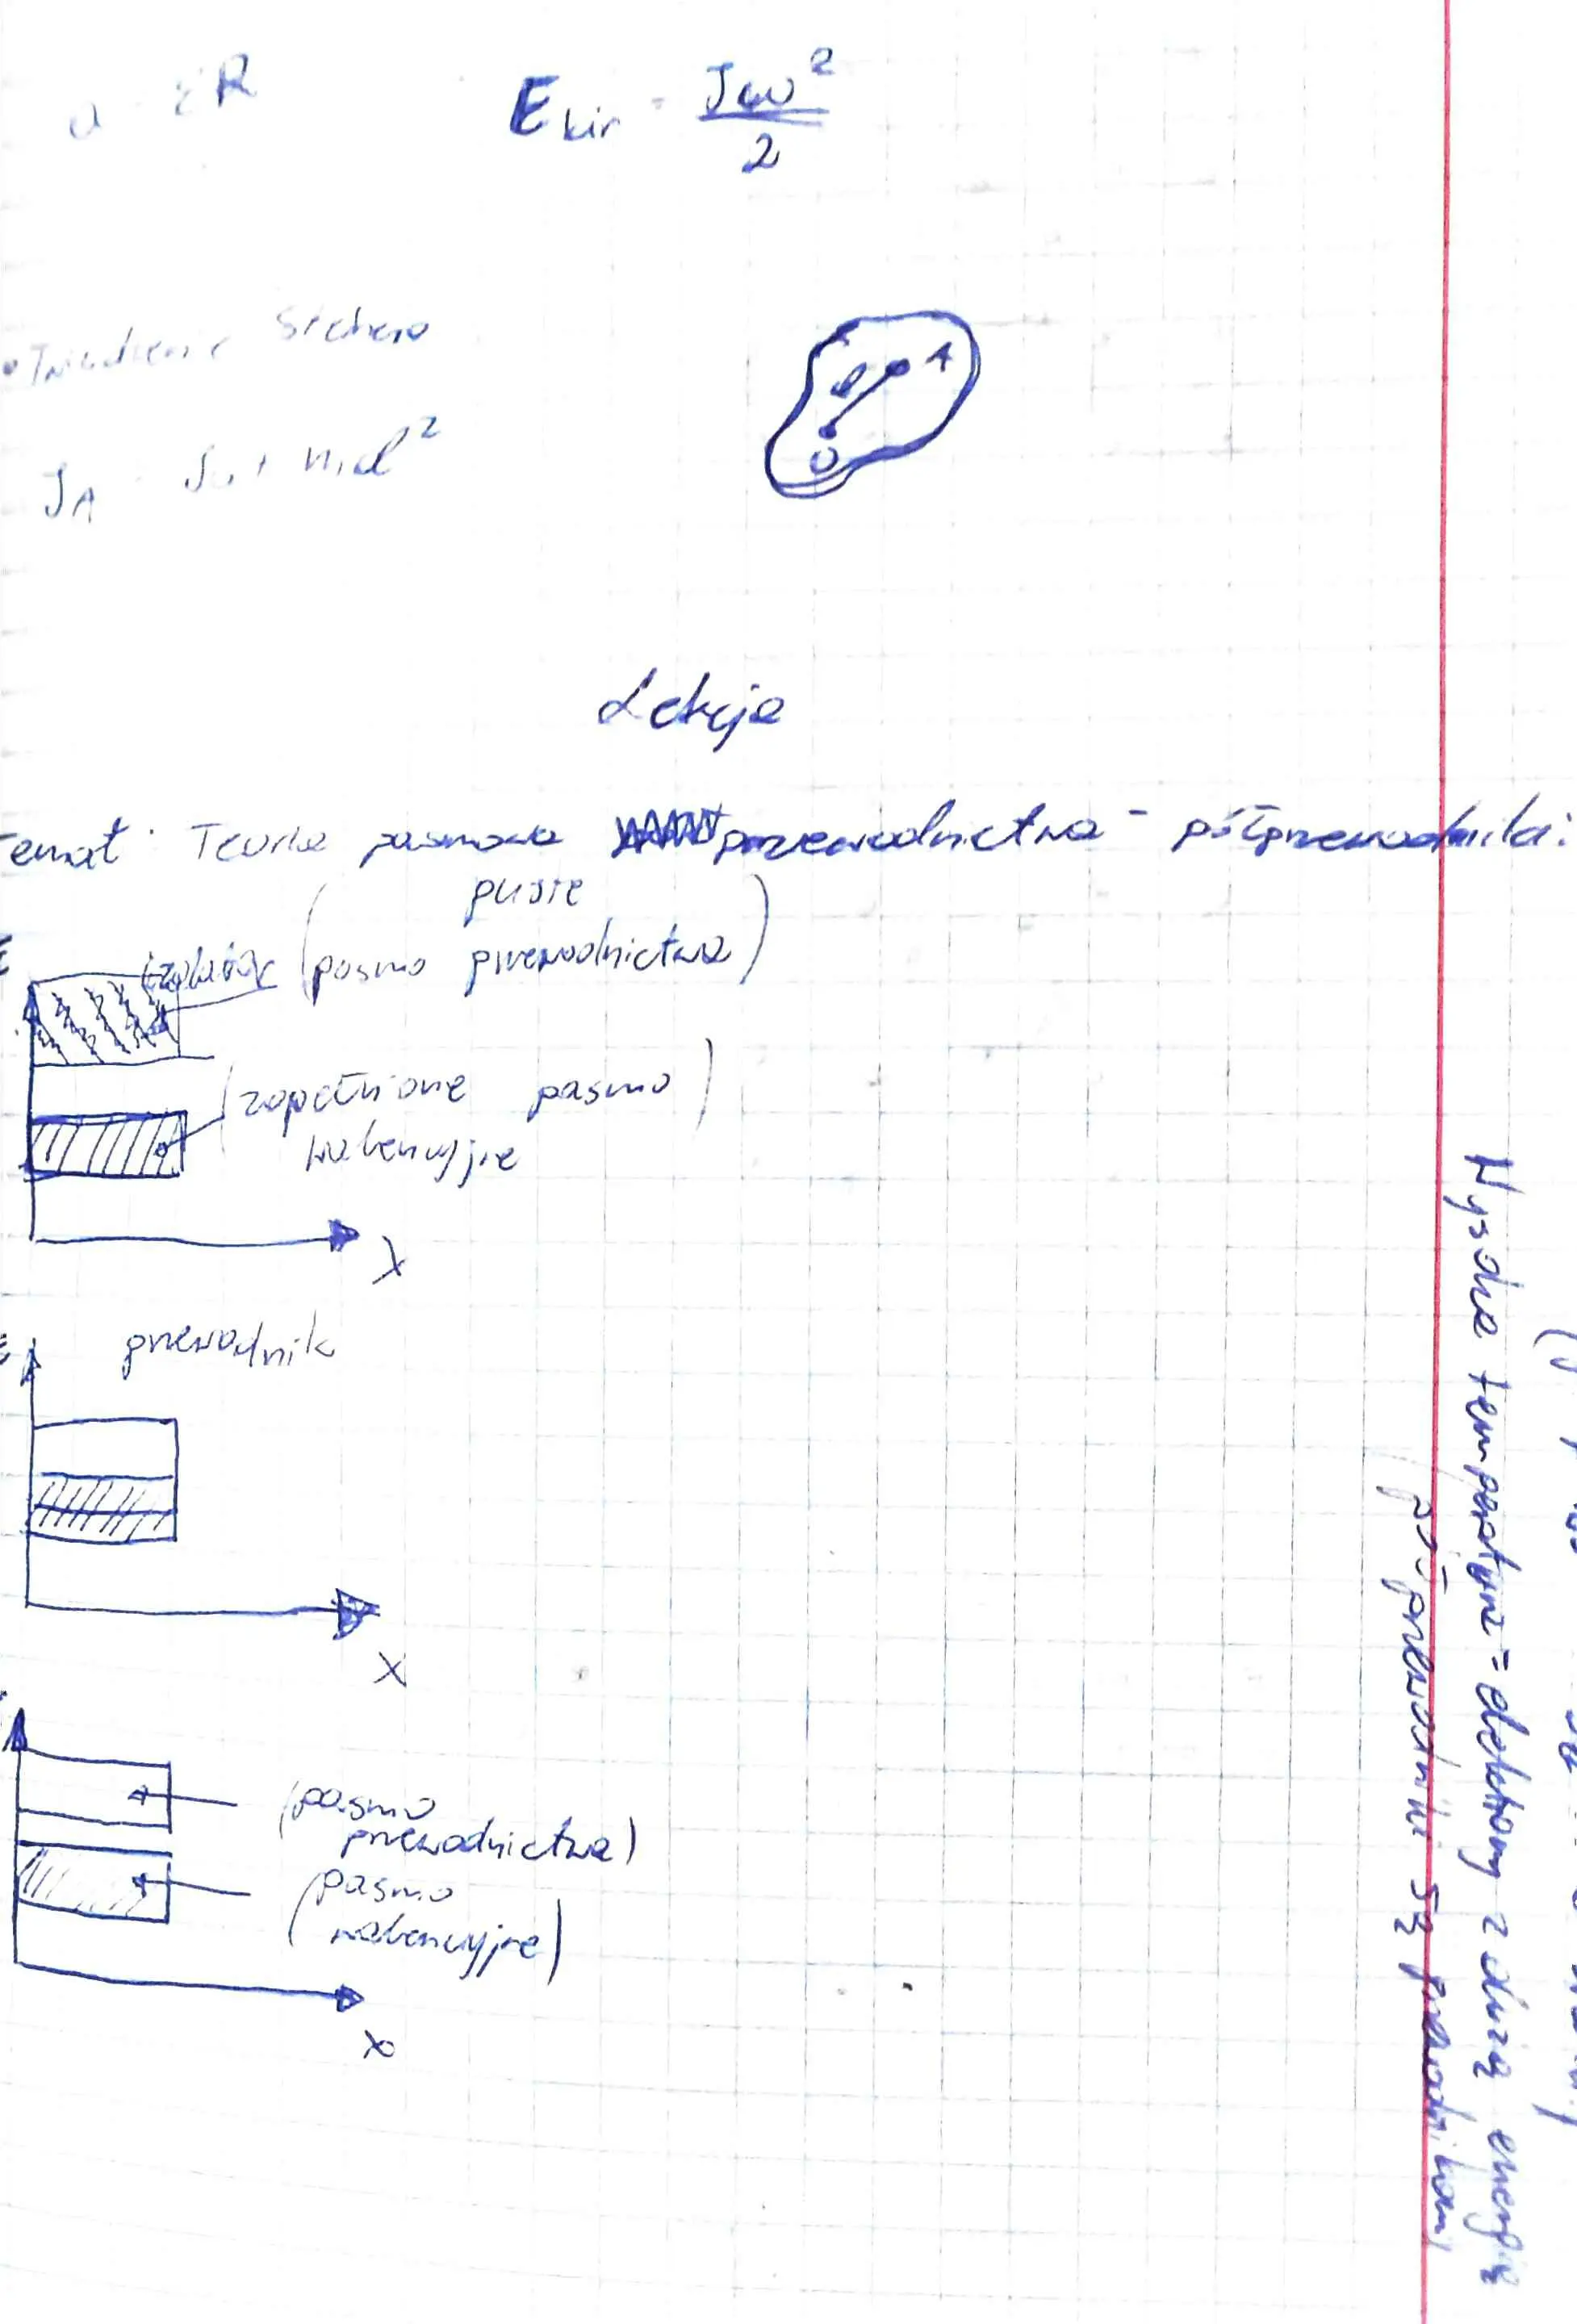 a = εR
E kin = Jω² / 2
Twierdzenie Steinera
J_A = J₀ + md²
A
d
O
Lekcja
Temat: Teoria pasmowa przewodnictwa - półprzewodniki
E
izolator
(puste pasmo przewodnictwa)
(zapełnione pasmo
walencyjne
x
E
przewodnik
x
(pasmo
przewodnictwa)
(pasmo
walencyjne)
x
Wysoka temperatura = elektrony z dużą energią
półprzewodniki są przewodnikami